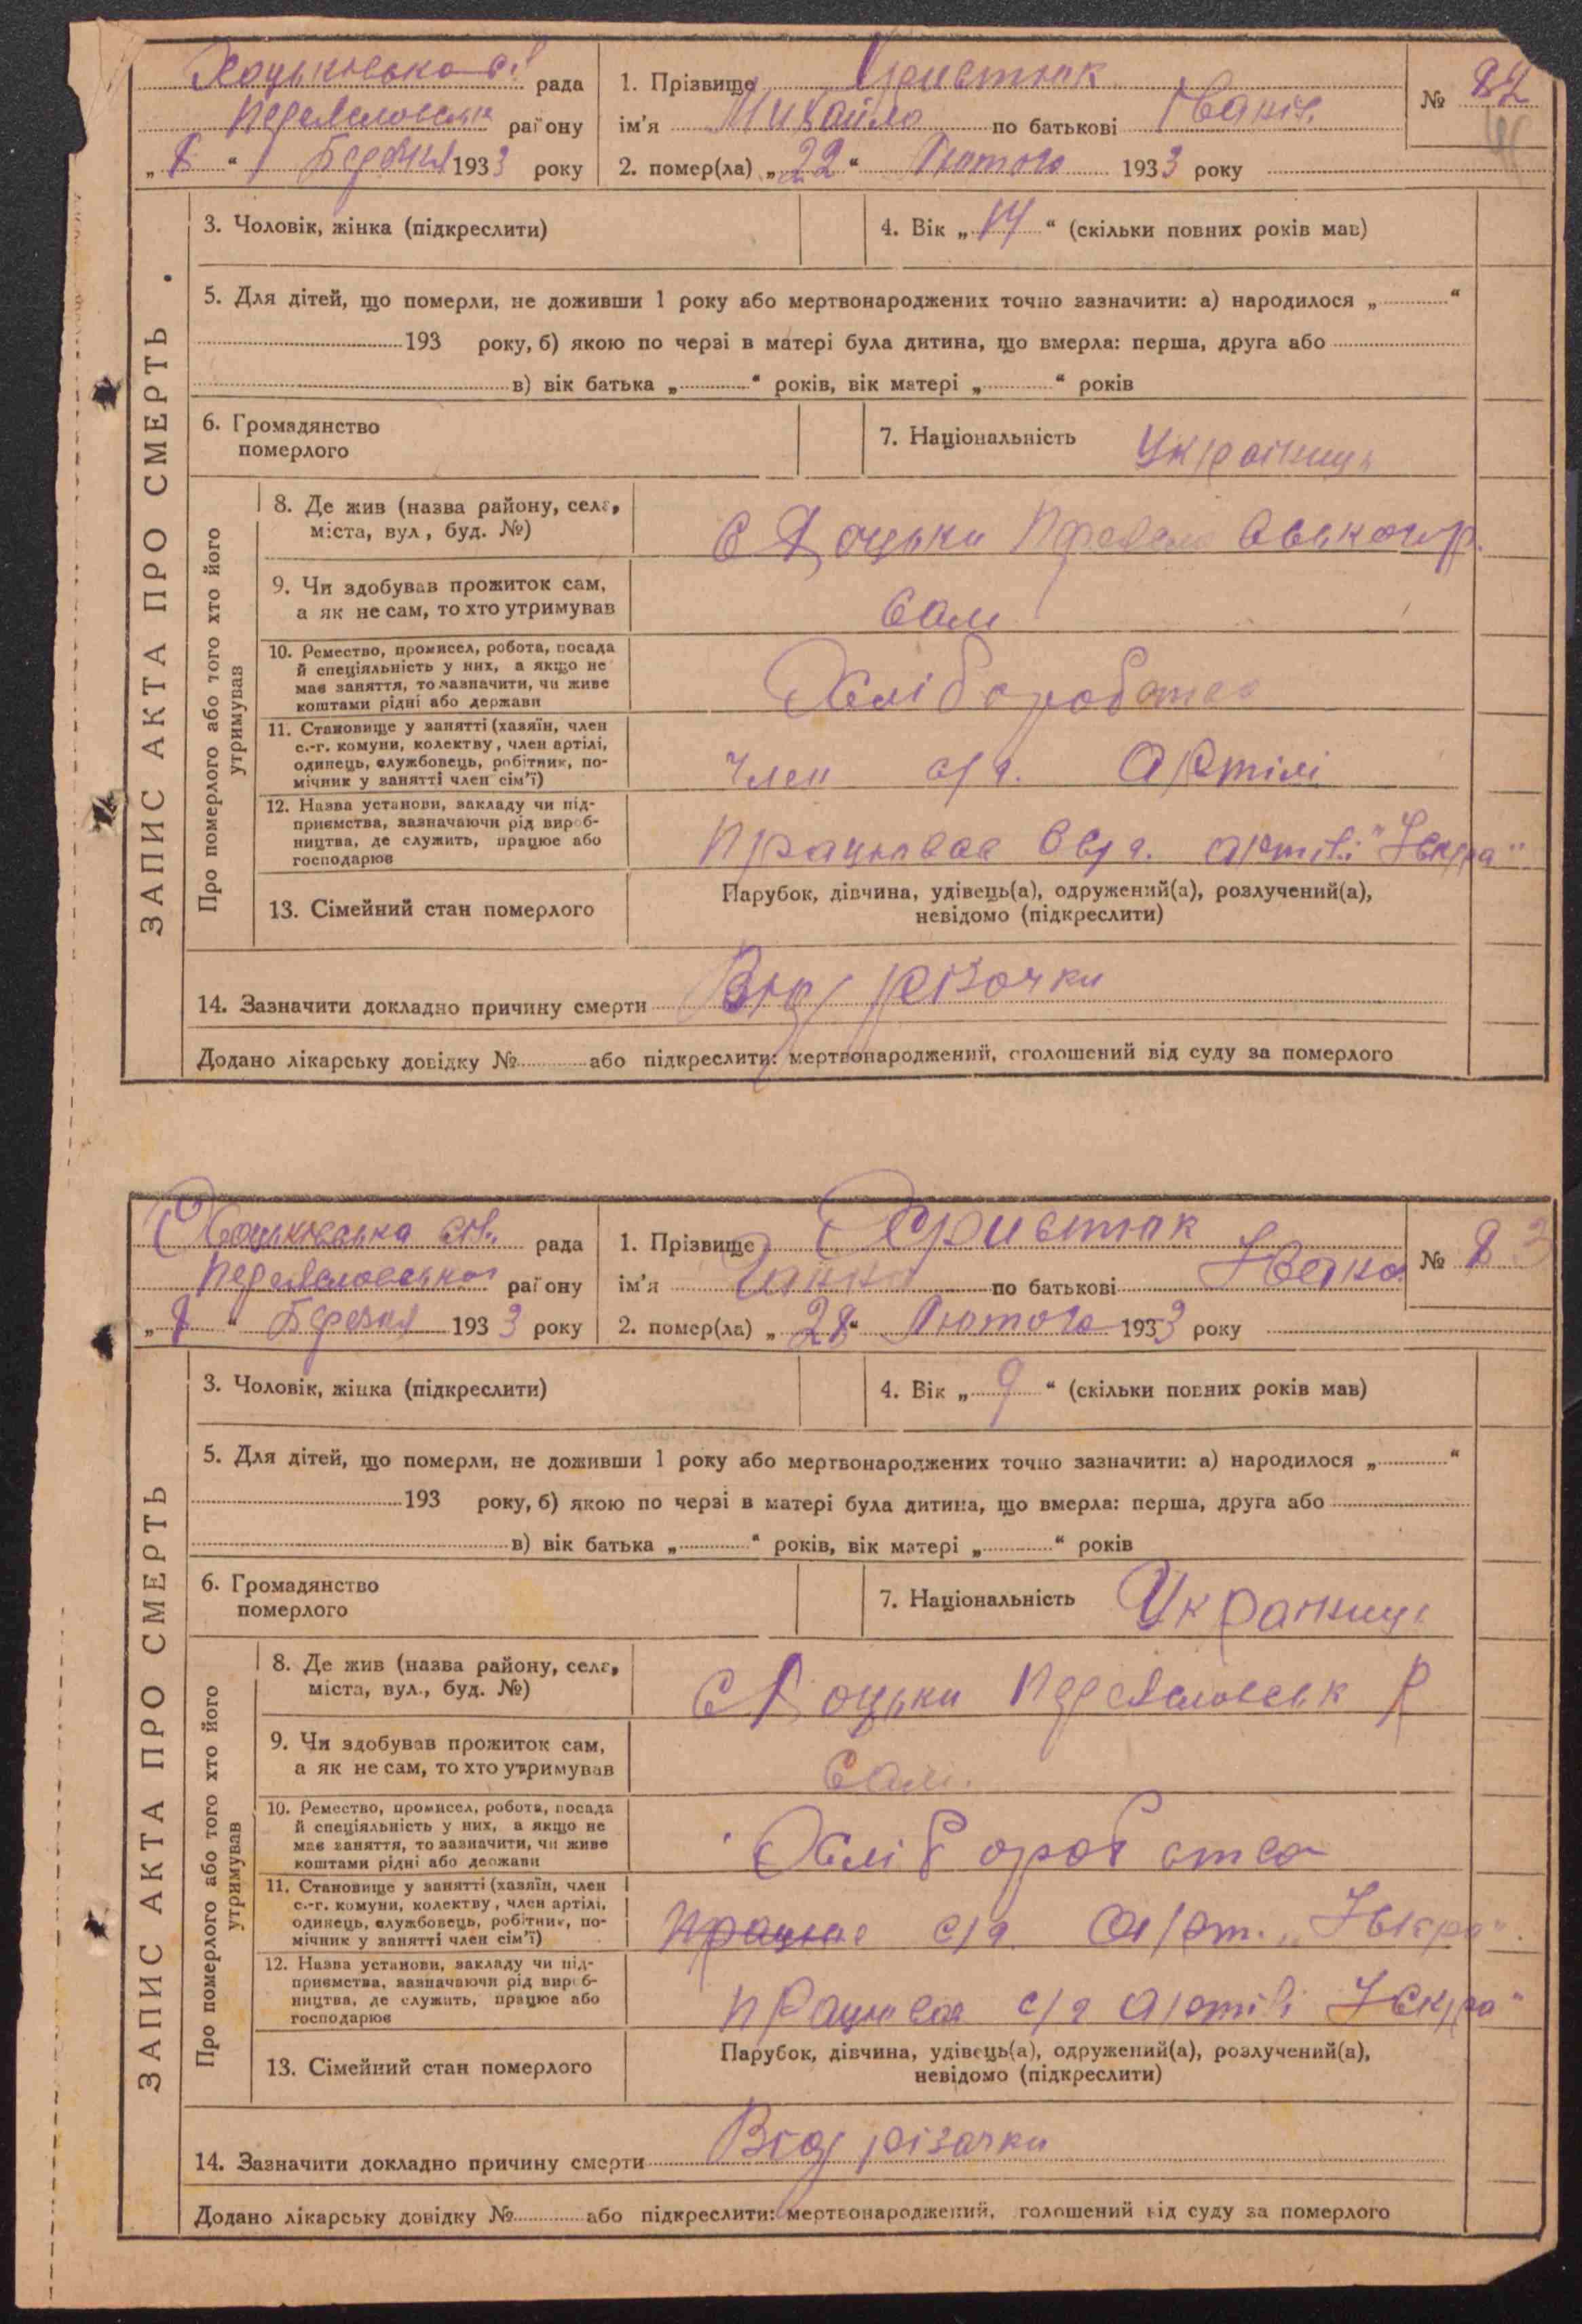 Хоцьківська с. рада
Переяславськ району
„ 8 “ Березня 1933 року
1. Прізвище Христюк
ім'я Михайло по батькові Іванів.
2. помер(ла) „ 22 “ Лютого 1933 року
№ 82
ЗАПИС АКТА ПРО СМЕРТЬ.
3. Чоловік, жінка (підкреслити)
4. Вік „ 14 “ (скільки повних років мав)
5. Для дітей, що померли, не доживши 1 року або мертвонароджених точно зазначити: а) народилося „ “
193 року, б) якою по черзі в матері була дитина, що вмерла: перша, друга або
в) вік батька „ “ років, вік матері „ “ років
6. Громадянство
померлого
7. Національність Українць
Про померлого або того хто його
утримував
8. Де жив (назва району, села,
міста, вул., буд. №)
С Хоцьки Переяславського р.
9. Чи здобував прожиток сам,
а як не сам, то хто утримував
Сам
10. Ремество, промисел, робота, посада
й спеціяльність у них, а якщо не
має заняття, то зазначити, чи живе
коштами рідні або держави
Хліборобство
11. Становище у занятті (хазяїн, член
с.-г. комуни, колективу, член артілі,
одинець, службовець, робітник, по-
мічник у занятті член сім'ї)
член с/г. Артілі
12. Назва установи, закладу чи під-
приємства, зазначаючи рід вироб-
ництва, де служить, працює або
господарює
Працював в с/г. артілі "Іскра"
13. Сімейний стан померлого
Парубок, дівчина, удівець(а), одружений(а), розлучений(а),
невідомо (підкреслити)
14. Зазначити докладно причину смерти Від різачки
Додано лікарську довідку № або підкреслити: мертвонароджений, оголошений від суду за померлого
Хоцьківська сіл. рада
Переяславського району
„ 8 “ Березня 1933 року
1. Прізвище Христюк
ім'я Ганна по батькові Івано
2. помер(ла) „ 28 “ Лютого 1933 року
№ 83
ЗАПИС АКТА ПРО СМЕРТЬ
3. Чоловік, жінка (підкреслити)
4. Вік „ 9 “ (скільки повних років мав)
5. Для дітей, що померли, не доживши 1 року або мертвонароджених точно зазначити: а) народилося „ “
193 року, б) якою по черзі в матері була дитина, що вмерла: перша, друга або
в) вік батька „ “ років, вік матері „ “ років
6. Громадянство
померлого
7. Національність
Про померлого або того хто його
утримував
8. Де жив (назва району, села,
міста, вул., буд. №)
С Хоцьки Переяславськ Р
9. Чи здобував прожиток сам,
а як не сам, то хто утримував
Сам.
10. Ремество, промисел, робота, посада
й спеціяльність у них, а якщо не
має заняття, то зазначити, чи живе
коштами рідні або держави
Хліборобство
11. Становище у занятті (хазяїн, член
с.-г. комуни, колективу, член артілі,
одинець, службовець, робітник, по-
мічник у занятті член сім'ї)
Працює с/г Арт. „Іскра"
12. Назва установи, закладу чи під-
приємства, зазначаючи рід вироб-
ництва, де служить, працює або
господарює
Працював с/г Артілі Іскра"
13. Сімейний стан померлого
Парубок, дівчина, удівець(а), одружений(а), розлучений(а),
невідомо (підкреслити)
14. Зазначити докладно причину смерти Від різачки
Додано лікарську довідку № або підкреслити: мертвонароджений, голошений від суду за померлого